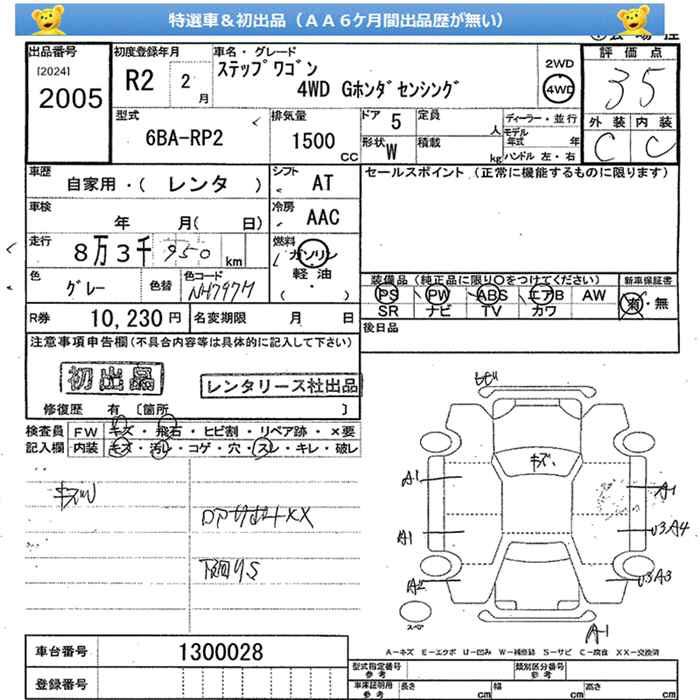 特選車＆初出品（ＡＡ６ケ月間出品歴が無い）
出品番号
[2024]
2005
初度登録年月
R2 2 月
車名・グレード
ステップワゴン
4WD Gホンダセンシング
2WD
4WD
評価点
35
外装 内装
C C
型式
6BA-RP2
排気量
1500 CC
ドア 5
形状 W
定員 人
積載 kg
ディーラー・並行
モデル年式 年
ハンドル 左・右
車歴
自家用・( レンタ )
シフト AT
車検
年 月( 日)
冷房 AAC
走行
8万3千 950 km
燃料
ガソリン
軽油
( ・ )
色
グレー
色替
色コード
NH797M
R券 10,230 円
名変期限 月 日
セールスポイント (正常に機能するものに限ります)
装備品 (純正品に限り○をつけてください)
PS PW ABS エアB AW
SR ナビ TV カワ
新車保証書
有・無
後日品
注意事項申告欄(不具合内容等は具体的に記入して下さい)
初出品
レンタリース社出品
修復歴 有 [箇所 ]
検査員記入欄
FW キズ・飛石・ヒビ割・リペア跡・×要
内装 キズ・汚レ・コゲ・穴・スレ・キレ・破レ
ドアサポートXX
下回りS
キズ
A1
A1
A1
U3A4
A2
U3A3
A-1
スペア
A-キズ E-エクボ U-凹み W-補修跡 S-サビ C-腐食 XX-交換済
車台番号 1300028
登録番号
型式指定番号 参考
類別区分番号 参考
車庫証明用 参考
長さ cm
幅 cm
高さ cm